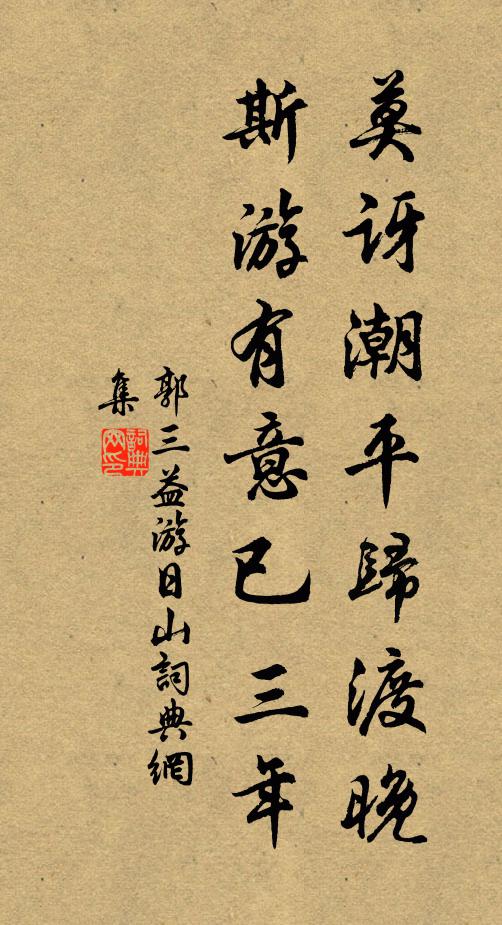 莫訝潮平歸渡晚
斯游有意已三年
郭三益游日山詞典網
集
詞典網印